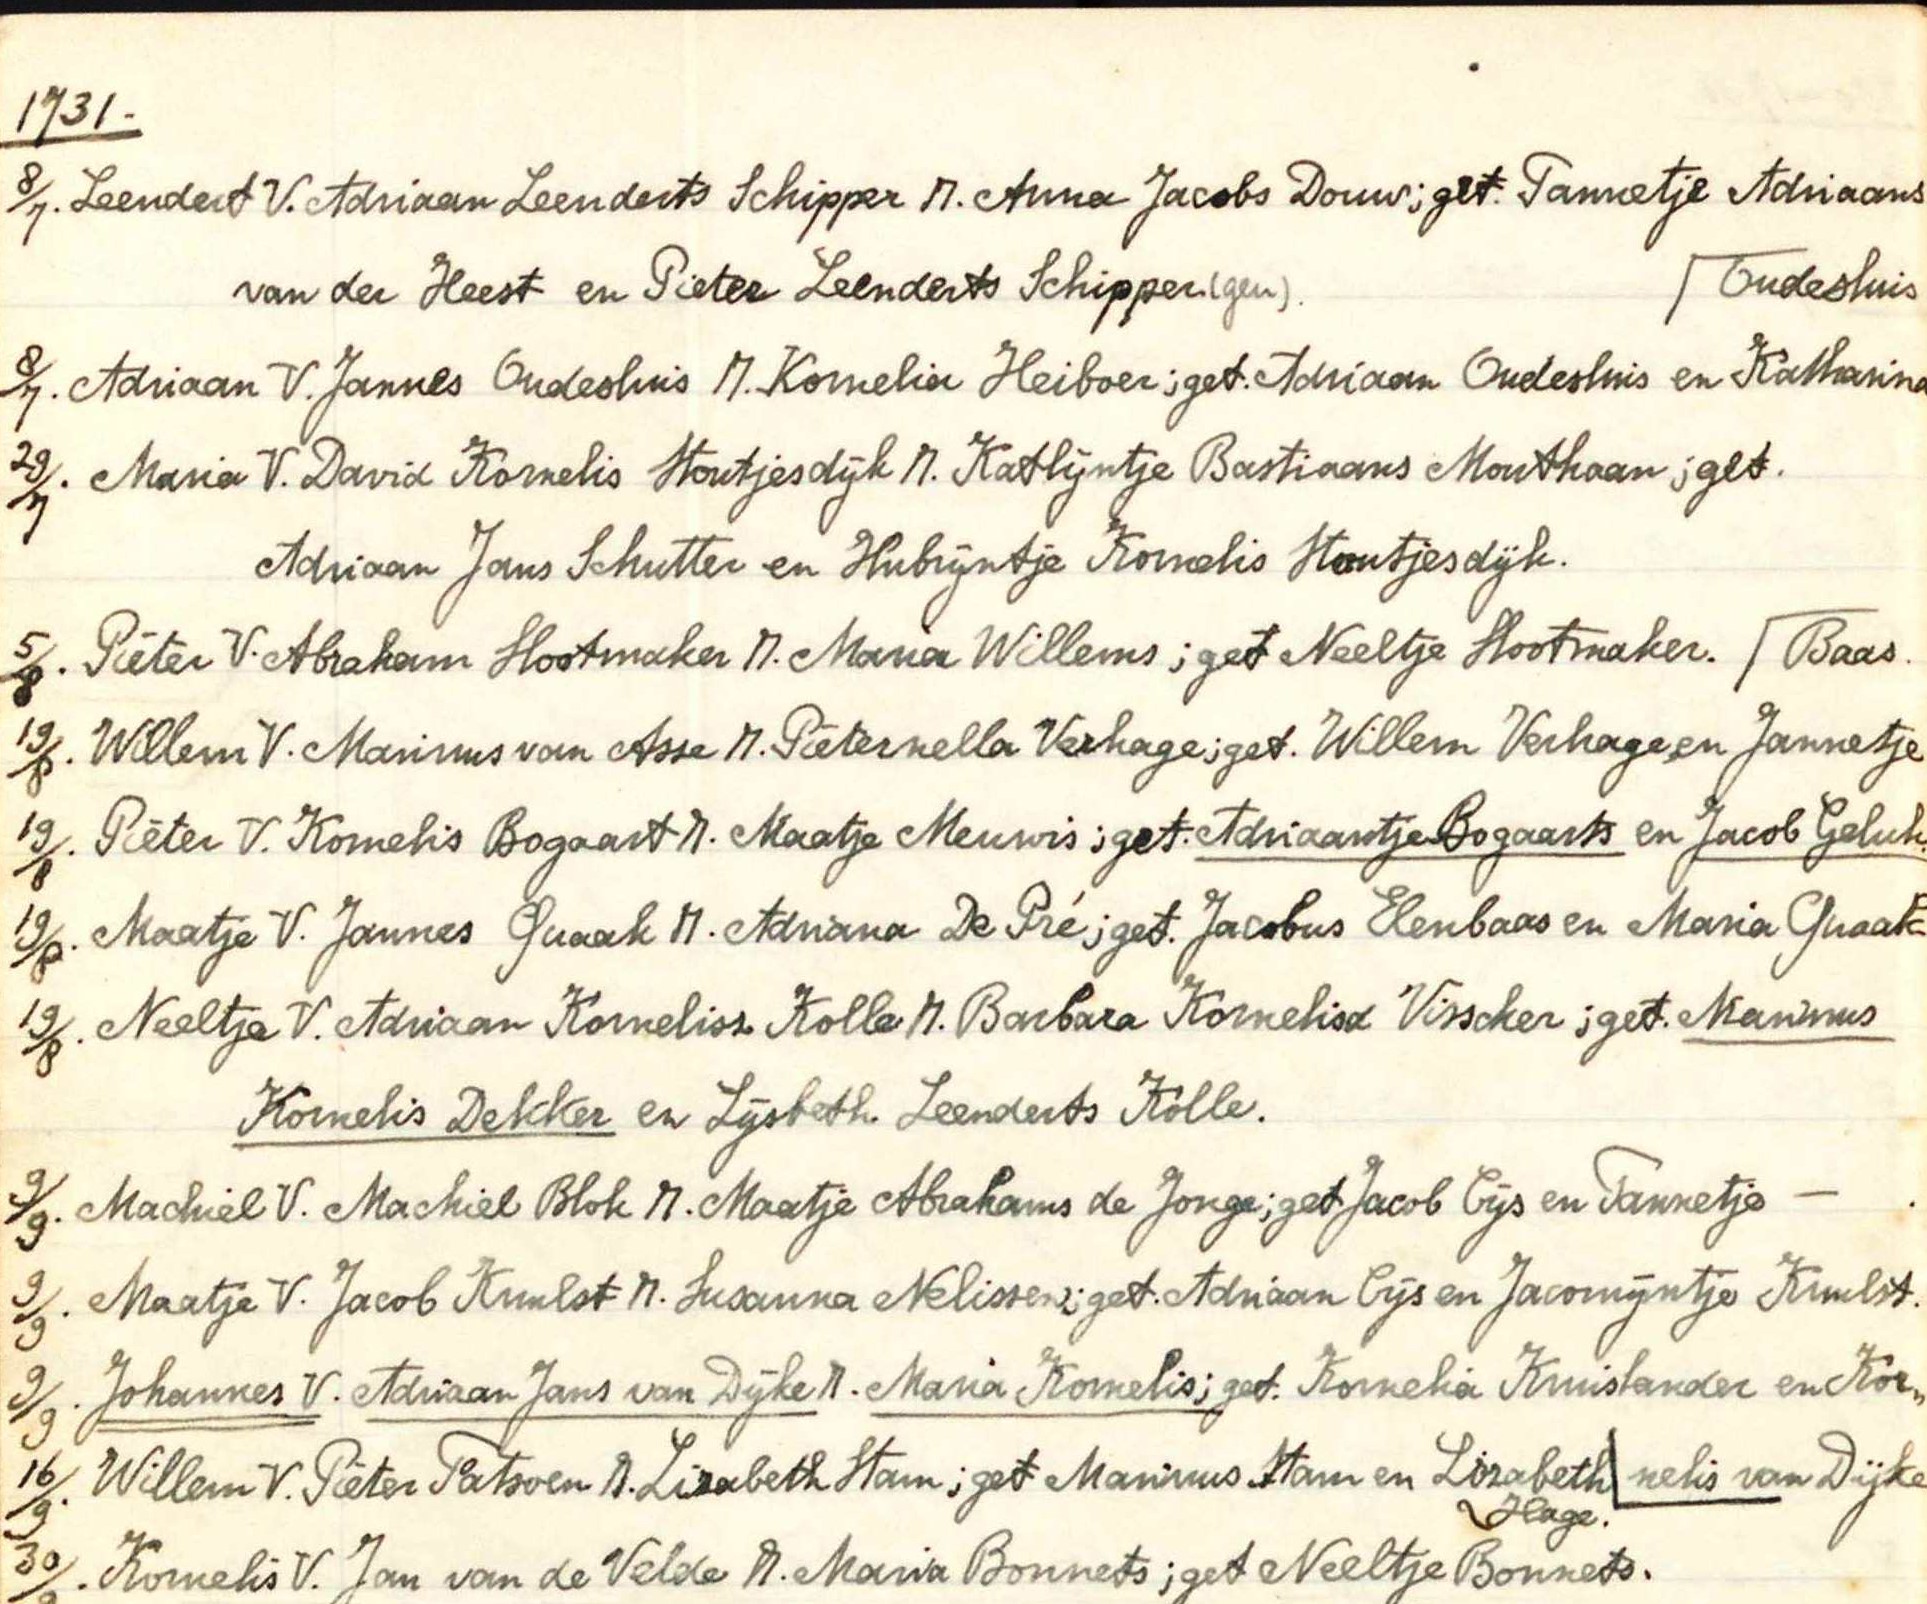 1731.
8/7. Leendert V. Adriaan Leenderts Schipper M. Anna Jacobs Douw; get. Tannetje Adriaans
van der Heest en Pieter Leenderts Schipper (gen). Oudesluis
8/7. Adriaan V. Jannes Oudesluis M. Kornelia Heiboer; get. Adriaan Oudesluis en Katharina
29/7. Maria V. David Kornelis Stoutjesdijk M. Katlijntje Bastiaans Mouthaan; get.
Adriaan Jans Schutter en Hubrijntje Kornelis Stoutjesdijk.
5/8. Pieter V. Abraham Slootmaker M. Maria Willems; get Neeltje Slootmaker. Baas.
19/8. Willem V. Marinus van Asse M. Pieternella Verhage; get. Willem Verhage en Jannetje
19/8. Pieter V. Kornelis Bogaart M. Maatje Meuwis; get. Adriaantje Bogaarts en Jacob Geluk.
19/8. Maatje V. Jannes Quaak M. Adriana De Pré; get. Jacobus Elenbaas en Maria Quaak
19/8. Neeltje V. Adriaan Korneliss Kolle M. Barbara Kornelisd Visscher; get. Marinus
Kornelis Dekker en Lijsbeth Leenderts Kolle.
9/9. Machiel V. Machiel Blok M. Maatje Abrahams de Jonge; get Jacob Cijs en Tannetje —
9/9. Maatje V. Jacob Knulst M. Susanna Nelissen; get. Adriaan Cijs en Jacomijntje Knulst.
9/9. Johannes V. Adriaan Jans van Dijke M. Maria Kornelis; get. Kornelia Kruislander en Kor„
16/9. Willem V. Pieter Patsoen M. Lizabeth Stam; get Marinus Stam en Lizabeth nelis van Dijke
Hage.
30/9. Kornelis V. Jan van de Velde M. Maria Bonnets; get Neeltje Bonnets.